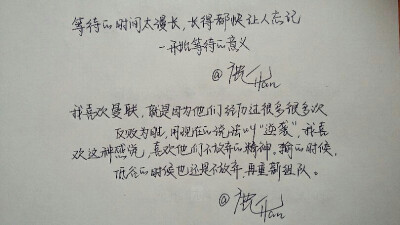 等待的时间太漫长，长得都快让人忘记
一开始等待的意义
@鹿Han
我喜欢曼联，就是因为他们经历过很多很多次
反败为胜，用现在的说法叫“逆袭”，我喜
欢这种感觉，喜欢他们不放弃的精神。输的时候，
低谷的时候也还是不放弃，再重新组队。
@鹿Han